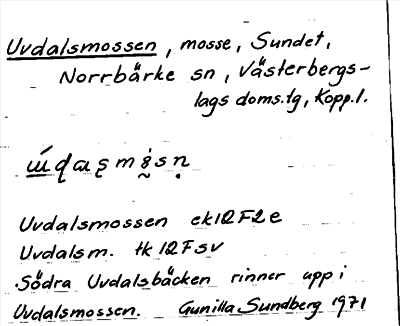 Uvdalsmossen, mosse, Sundet,
Norrbärke sn, Västerbergs-
lags doms.tg, Kopp.l.
Uvdalsmossen ek12F2e
Uvdalsm. tk 12F sv
Södra Uvdalsbäcken rinner upp i
Uvdalsmossen. Gunilla Sundberg 1971